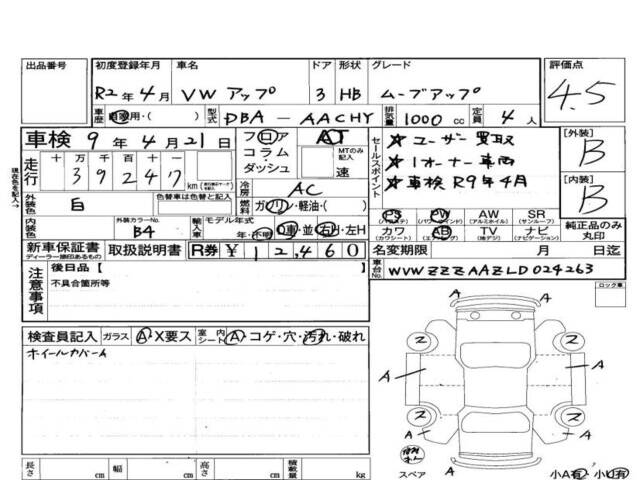 出品番号 初度登録年月 車名 ドア 形状 グレード 評価点
R2年4月 VW アップ 3 HB ムーブアップ 4.5
車歴 自家用・( ) 型式 DBA - AACHY 排気量 1000 cc 定員 4 人
車検 9年4月21日 フロア AT セールスポイント ★ユーザー買取 [外装]
コラム MTのみ記入 ★1オーナー車両 B
走行 十万千百十一 ダッシュ 速 ★車検R9年4月 [内装]
39247 km 冷房 AC B
現在色を記入→ 外装色 白 色替車は色替と記入 燃料 ガソリン・軽油・( ) PS PW AW SR
(パワステ) (パワーウインド) (アルミホイル) (サンルーフ) 純正品のみ丸印
内装色 外装カラーNo. B4 輸入車 モデル年式 年・不明 D車・並 右H・左H カワ AB TV ナビ
(カワシート) (エアバッグ) (地デジ) (ナビゲーション)
新車保証書 取扱説明書 R券 ¥12,460 名変期限 月 日迄
ディーラー捺印あるもの
注意事項 後日品 [ 車台No. WVWZZZAAZLD024263
不具合箇所等 ロック車
検査員記入 ガラス A・X要ス 室内シート A・コゲ・穴・汚れ・破れ
ホイールカバーA
A
2 2
A A A
2 2
A A
A
スペア 小A有・小U有
長さ cm 幅 cm 高さ cm 積載量 kg